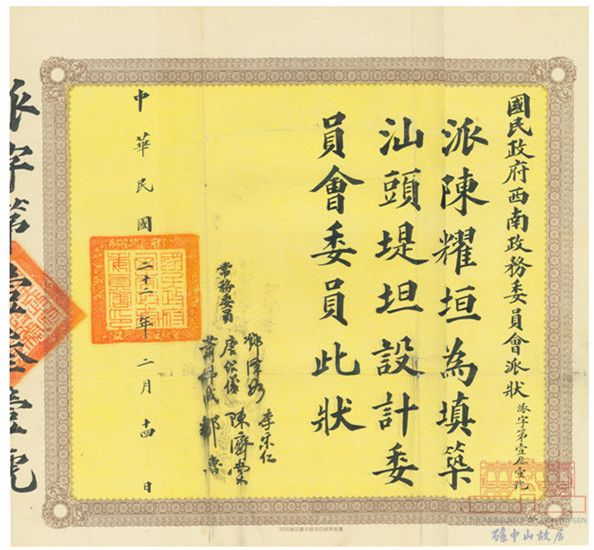 國民政府西南政務委員會派狀
派字第壹叁壹號
派陳耀垣為填築
汕頭堤坦設計委
員會委員此狀
常務委員
鄧澤如
李宗仁
唐紹儀
陳濟棠
蕭佛成
鄒魯
中華民國二十二年二月十四日
派字第壹叁壹號
孫中山故居